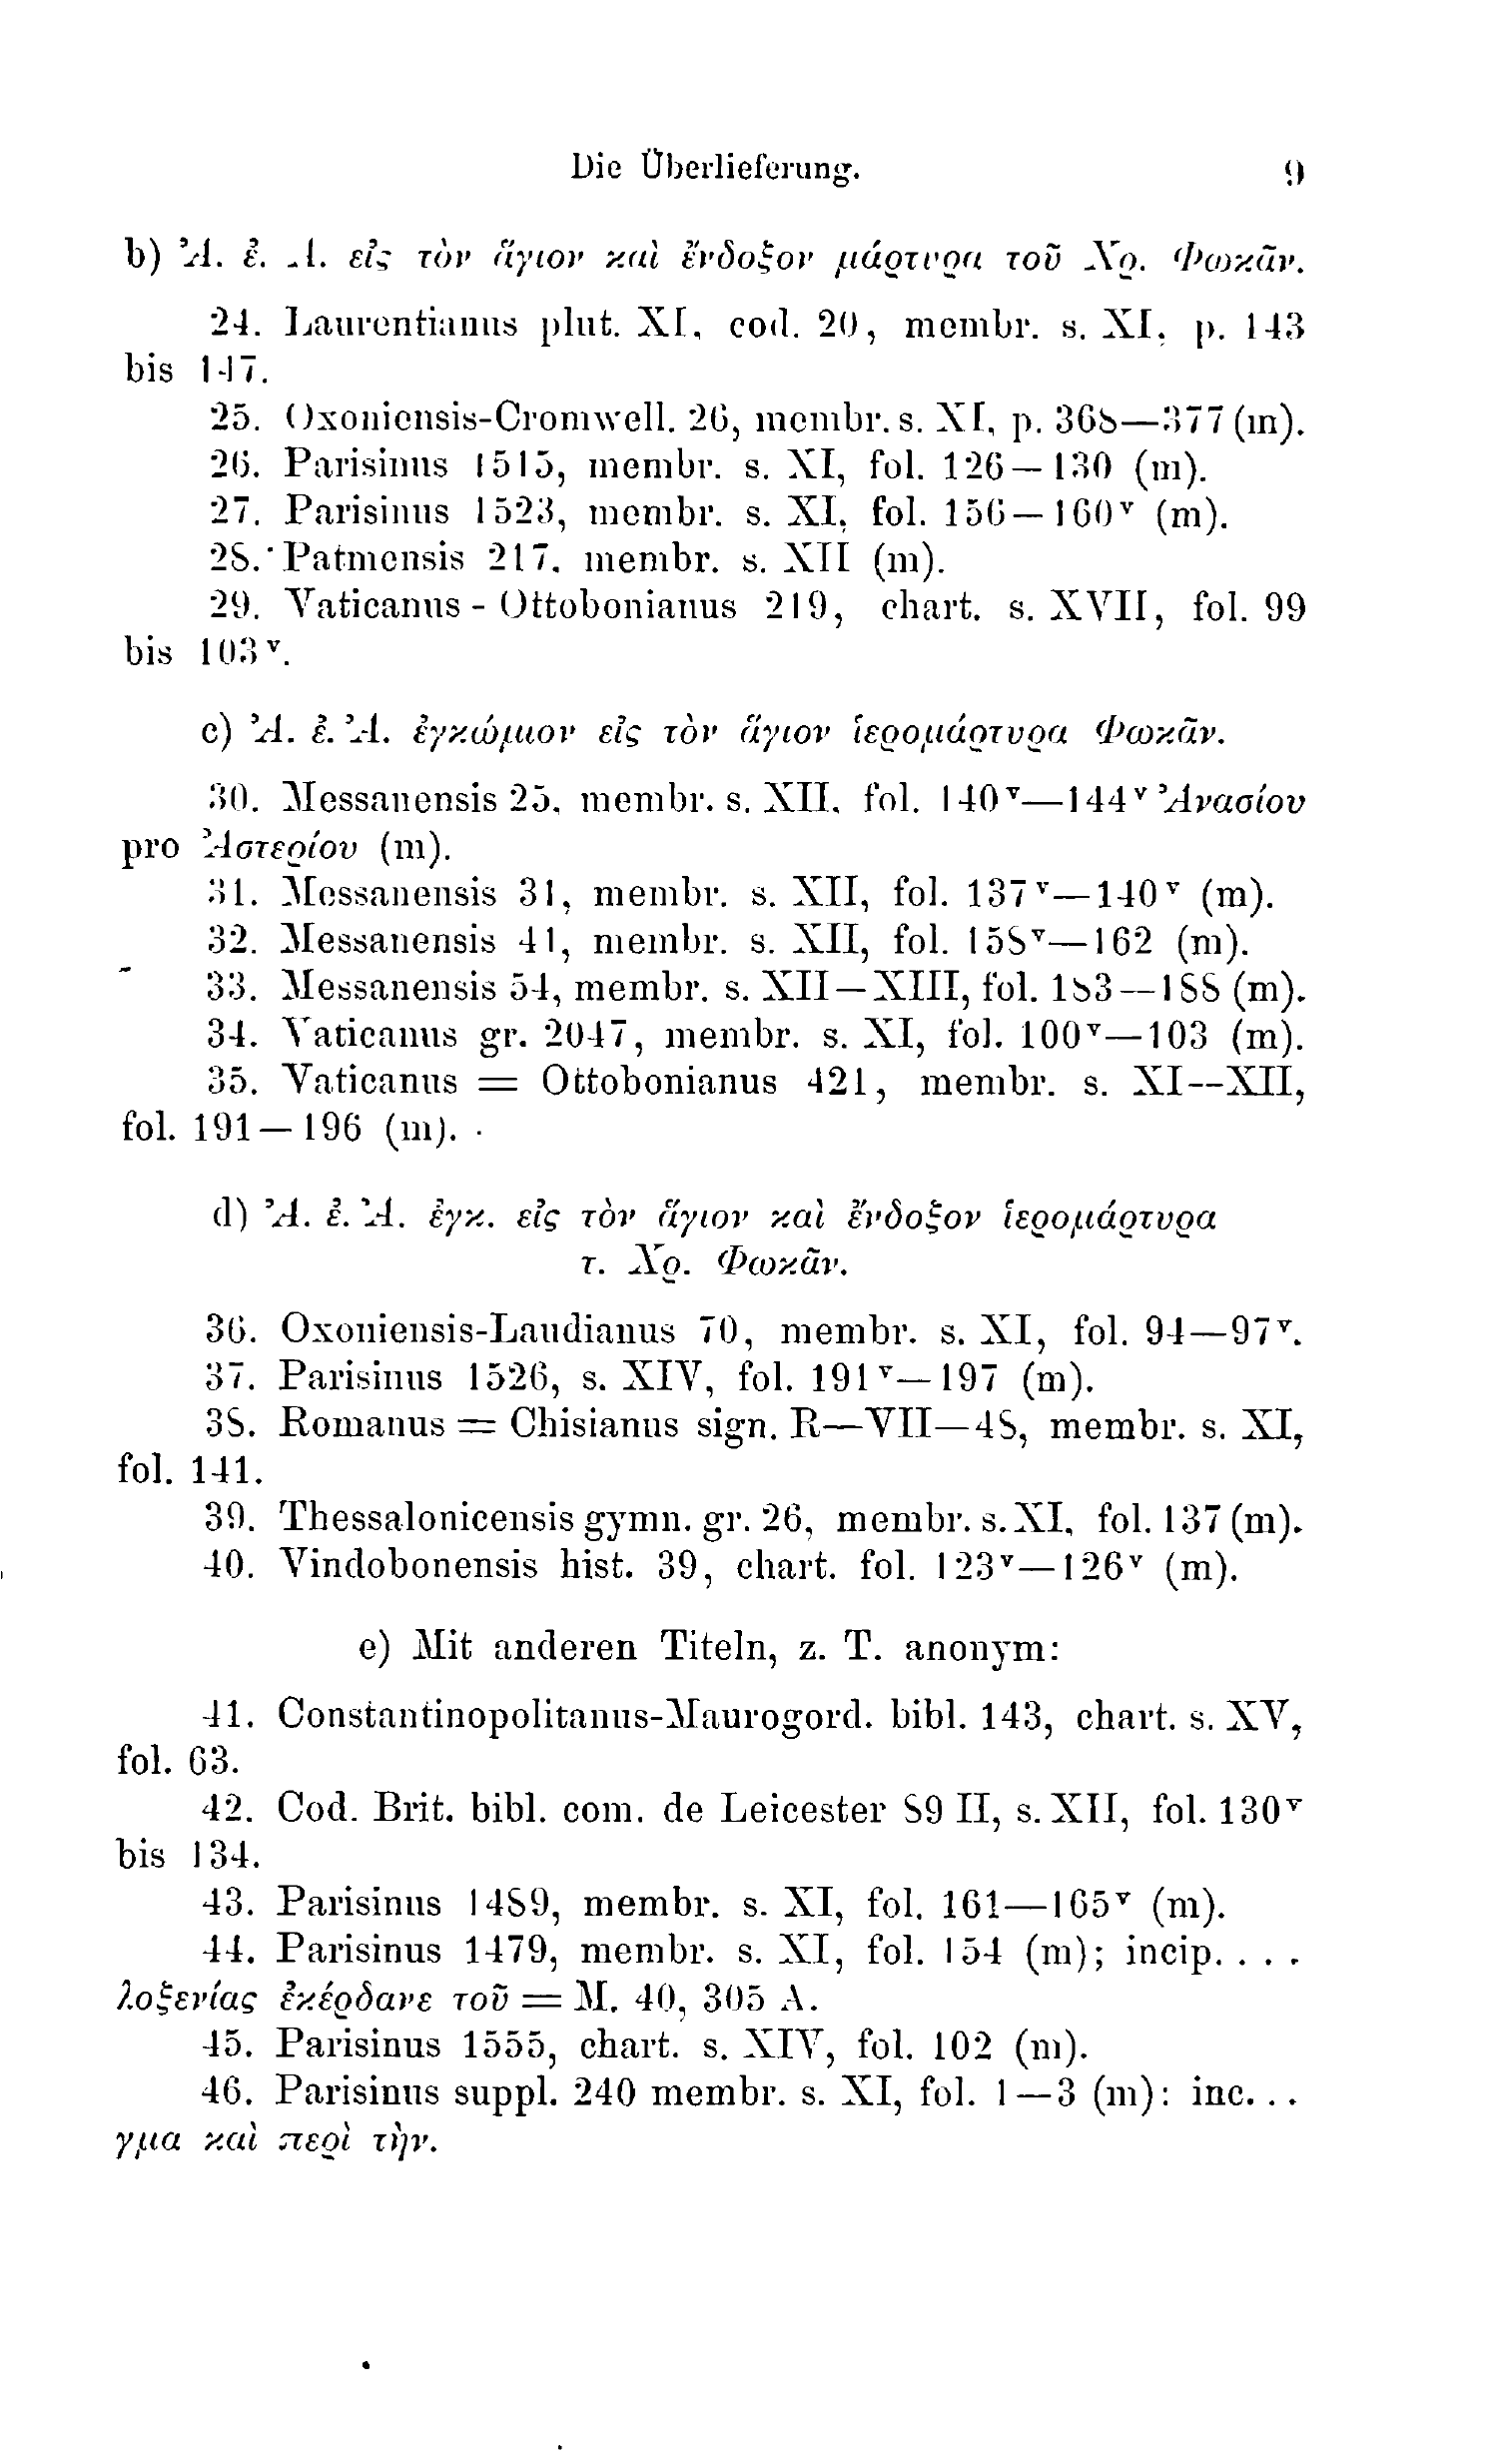 Die Überlieferung. 9
b) Ἀ. ἐ. Ἀ. εἰς τὸν ἅγιον καὶ ἔνδοξον μάρτυρα τοῦ Χρ. Φωκᾶν.
24. Laurentianus plut. XI, cod. 20, membr. s. XI, p. 143
bis 147.
25. Oxoniensis-Cromwell. 26, membr. s. XI, p. 368—377 (m).
26. Parisinus 1515, membr. s. XI, fol. 126—130 (m).
27. Parisinus 1523, membr. s. XI, fol. 156—160ᵛ (m).
28. Patmensis 217, membr. s. XII (m).
29. Vaticanus - Ottobonianus 219, chart. s. XVII, fol. 99
bis 103ᵛ.
c) Ἀ. ἐ. Ἀ. ἐγκώμιον εἰς τὸν ἅγιον ἱερομάρτυρα Φωκᾶν.
30. Messanensis 25, membr. s. XII, fol. 140ᵛ—144ᵛ Ἀνασίου
pro Ἀστερίου (m).
31. Messanensis 31, membr. s. XII, fol. 137ᵛ—140ᵛ (m).
32. Messanensis 41, membr. s. XII, fol. 158ᵛ—162 (m).
33. Messanensis 54, membr. s. XII—XIII, fol. 183—188 (m).
34. Vaticanus gr. 2047, membr. s. XI, fol. 100ᵛ—103 (m).
35. Vaticanus = Ottobonianus 421, membr. s. XI—XII,
fol. 191—196 (m).
d) Ἀ. ἐ. Ἀ. ἐγκ. εἰς τὸν ἅγιον καὶ ἔνδοξον ἱερομάρτυρα
τ. Χρ. Φωκᾶν.
36. Oxoniensis-Laudianus 70, membr. s. XI, fol. 94—97ᵛ.
37. Parisinus 1526, s. XIV, fol. 191ᵛ—197 (m).
38. Romanus = Chisianus sign. R—VII—48, membr. s. XI,
fol. 141.
39. Thessalonicensis gymn. gr. 26, membr. s. XI, fol. 137 (m).
40. Vindobonensis hist. 39, chart. fol. 123ᵛ—126ᵛ (m).
e) Mit anderen Titeln, z. T. anonym:
41. Constantinopolitanus-Maurogord. bibl. 143, chart. s. XV,
fol. 63.
42. Cod. Brit. bibl. com. de Leicester 89 II, s. XII, fol. 130ᵛ
bis 134.
43. Parisinus 1489, membr. s. XI, fol. 161—165ᵛ (m).
44. Parisinus 1479, membr. s. XI, fol. 154 (m); incip. . . .
λοξενίας ἐκέρδανε τοῦ = M. 40, 305 A.
45. Parisinus 1555, chart. s. XIV, fol. 102 (m).
46. Parisinus suppl. 240 membr. s. XI, fol. 1—3 (m): inc. . .
γμα καὶ περὶ τὴν.